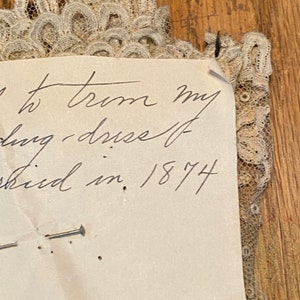 to trim my
ding-dress &
rried in 1874